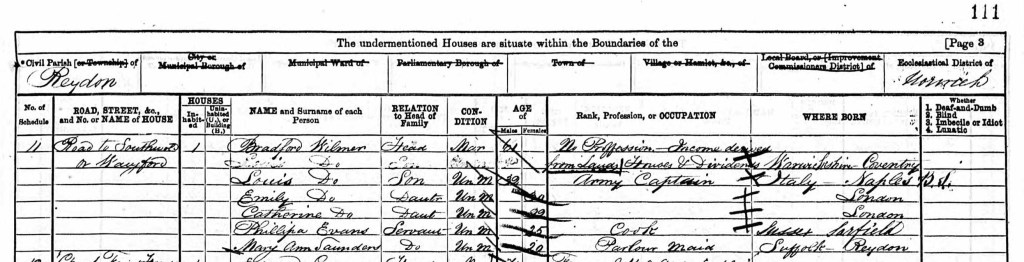 111
The undermentioned Houses are situate within the Boundaries of the [Page 3
Civil Parish [or Township] of City or Municipal Borough of Municipal Ward of Parliamentary Borough of Town of Village or Hamlet, &c., of Local Board, or [Improvement Commissioners District] of Ecclesiastical District of
Reydon Norwich
No. of Schedule ROAD, STREET, &c., and No. or NAME of HOUSE HOUSES Inhabited Uninhabited (U.), or Building (B.) NAME and Surname of each Person RELATION to Head of Family CONDITION AGE of Males Females Rank, Profession, or OCCUPATION WHERE BORN Whether 1. Deaf-and-Dumb 2. Blind 3. Imbecile or Idiot 4. Lunatic
11 Road to Southwold 1 Bradford Wilmer Head Mar 61 No Profession - Income derived
or Wangford Do from Land Houses & Dividends Warwickshire - Coventry
Louis Do Son Un M 32 Army Captain Italy - Naples B.S.
Emily Do Daur Un M London
Catherine Do Daur Un M London
Phillipa Evans Servant Un M 25 Cook Sussex
Mary Ann Saunders Do Un M 20 Parlour Maid Suffolk - Reydon